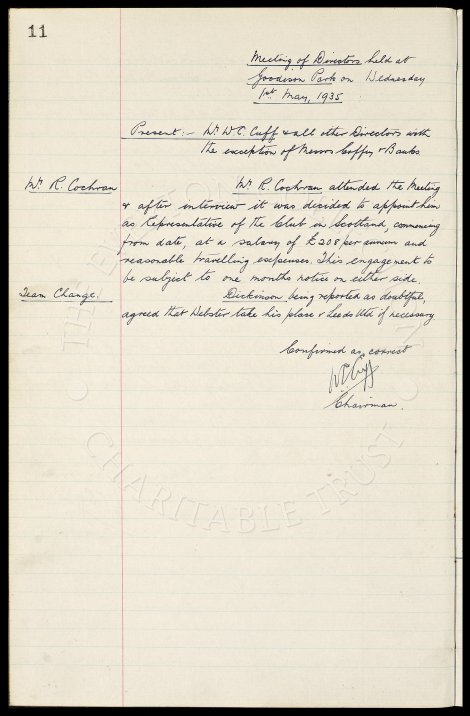 11
Meeting of Directors held at
Goodison Park on Wednesday
1st May, 1935
Present:- Mr W.C. Cuff & all other Directors with
the exception of Messrs Coffey & Banks
Mr. R. Cochran
Mr. R. Cochran attended the Meeting
& after interview it was decided to appoint him
as Representative of the Club in Scotland, commencing
from date, at a salary of £208 per annum and
reasonable travelling expenses. This engagement to
be subject to one months notice on either side.
Team Change.
Dickinson being reported as doubtful,
agreed that Webster take his place v Leeds Utd if necessary
Confirmed as correct
W.C. Cuff
Chairman.
THE EVERTON COLLECTION
CHARITABLE TRUST